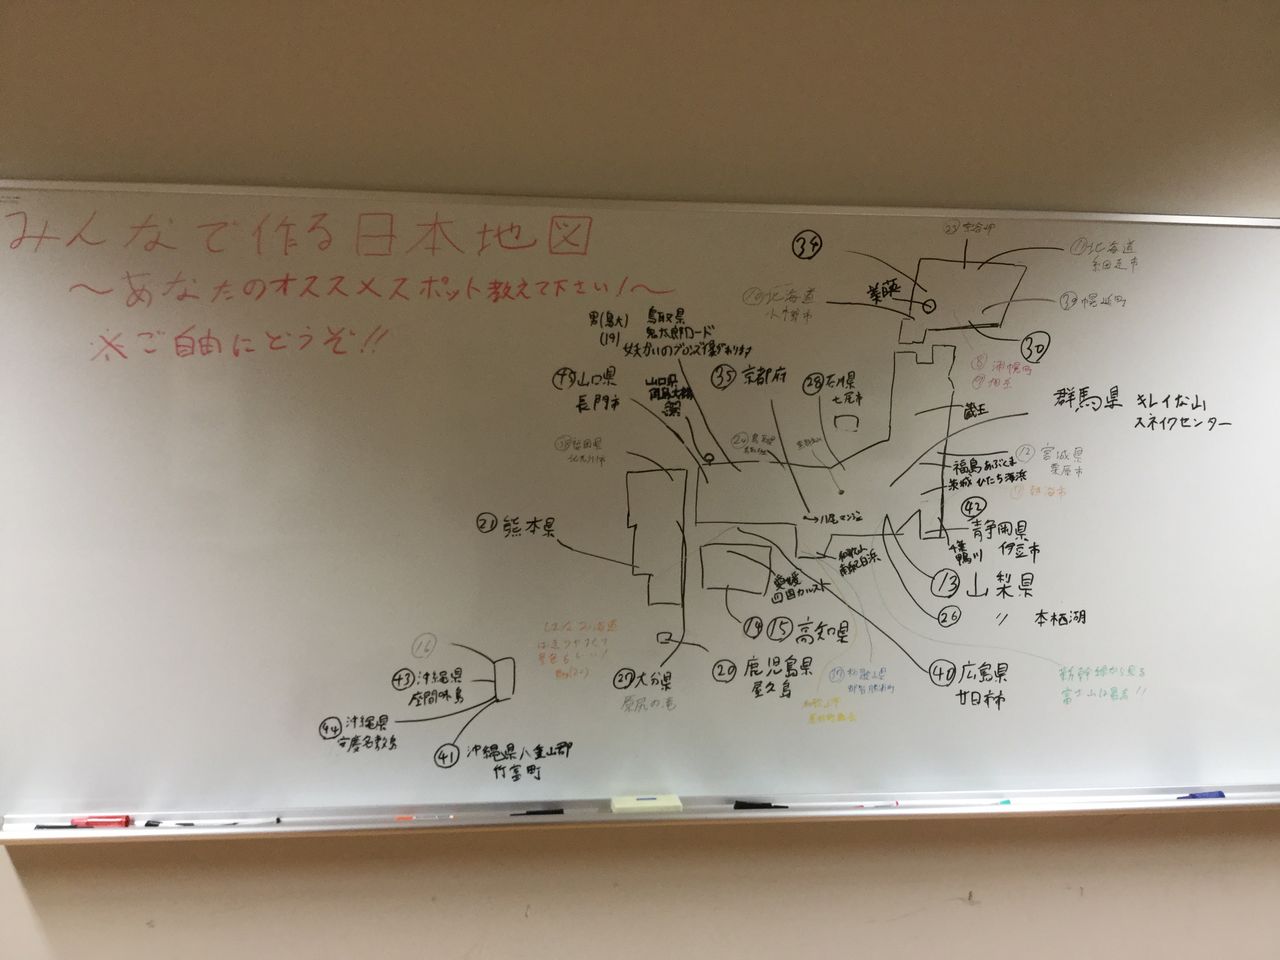 みんなで作る日本地図
～あなたのオススメスポット教えて下さい!～
※ご自由にどうぞ!!
34
北海道
小樽市
美瑛
11 北海道
網走市
39 幌延町
30
浦幌町
男(鳥大)
(19)
鳥取県
鬼太郎ロード
妖かいのブロンズ像があります
山口県
長門市
山口県
角島大橋
35 京都府
28 石川県
七尾市
蔵王
群馬県 キレイな山
スネイクセンター
12 宮城県
栗原市
福島あぶくま
茨城 ひたち海浜
熱海市
42
静岡県
伊豆市
千葉
鴨川
13 山梨県
26 〃 本栖湖
21 熊本県
和歌山
南紀白浜
愛媛
四国カルスト
14 15 高知県
20 鹿児島県
屋久島
27 大分県
原尻の滝
40 広島県
廿日市
和歌山県
新幹線から見る
富士山は最高!!
16
43 沖縄県
座間味島
44 沖縄県
安慶名敷島
41 沖縄県八重山郡
竹富町